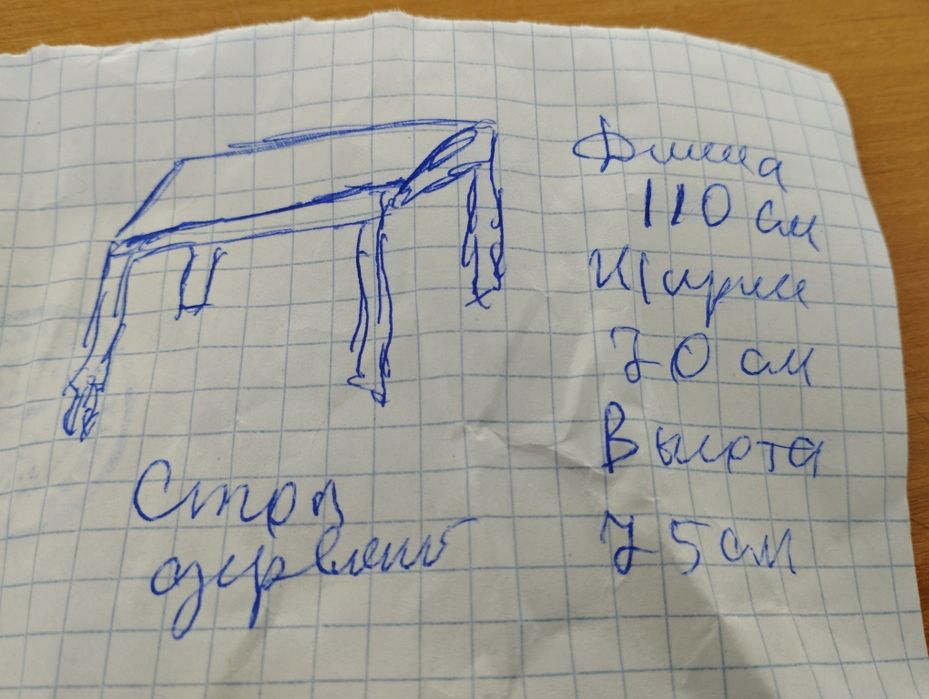 Длина
110 см
Ширин
70 см
Высота
75 см
Стол